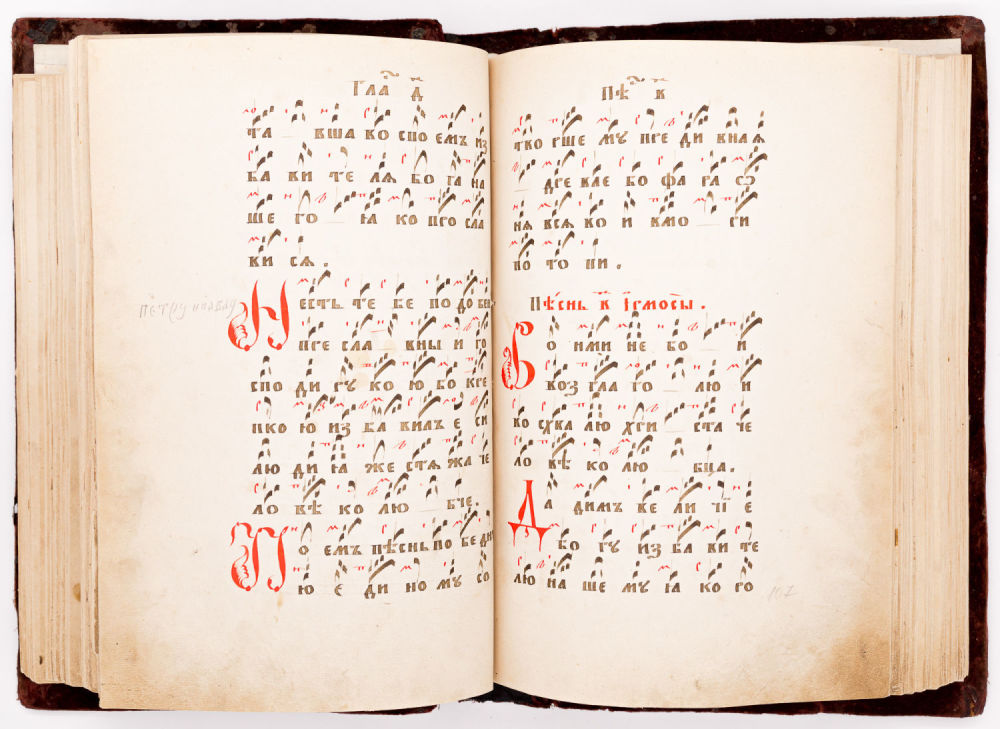 Гла д҃
та вша ко спо емъ из
ба ви те лѧ бо га на
ше го ꙗ ко про сла
ви сѧ .
Нѣсть те бе по до бен
пре сла вны и го
спо ди рꙋ ко ю бо кре
пко ю из ба вилъ е си
лю ди ꙗ же стѧ жа че
ло вѣ ко лю бче .
петру и павлу
По емъ пѣснь по бе дн
ю е ди но мꙋ со
Пѣ в҃
тво рше мꙋ пре ди внаѧ
дре вле бо фа ра ѡ
нѧ всѧ ко и вмо ри
по то пи .
Пѣснь в҃ ірмосы .
Со ими не бо и
воз гла го лю и
во схва лю хри ста че
ло вѣ ко лю бца .
Да димъ ве ли чі е
бо гꙋ из ба ви те
лю на ше мꙋ ꙗ ко го
107